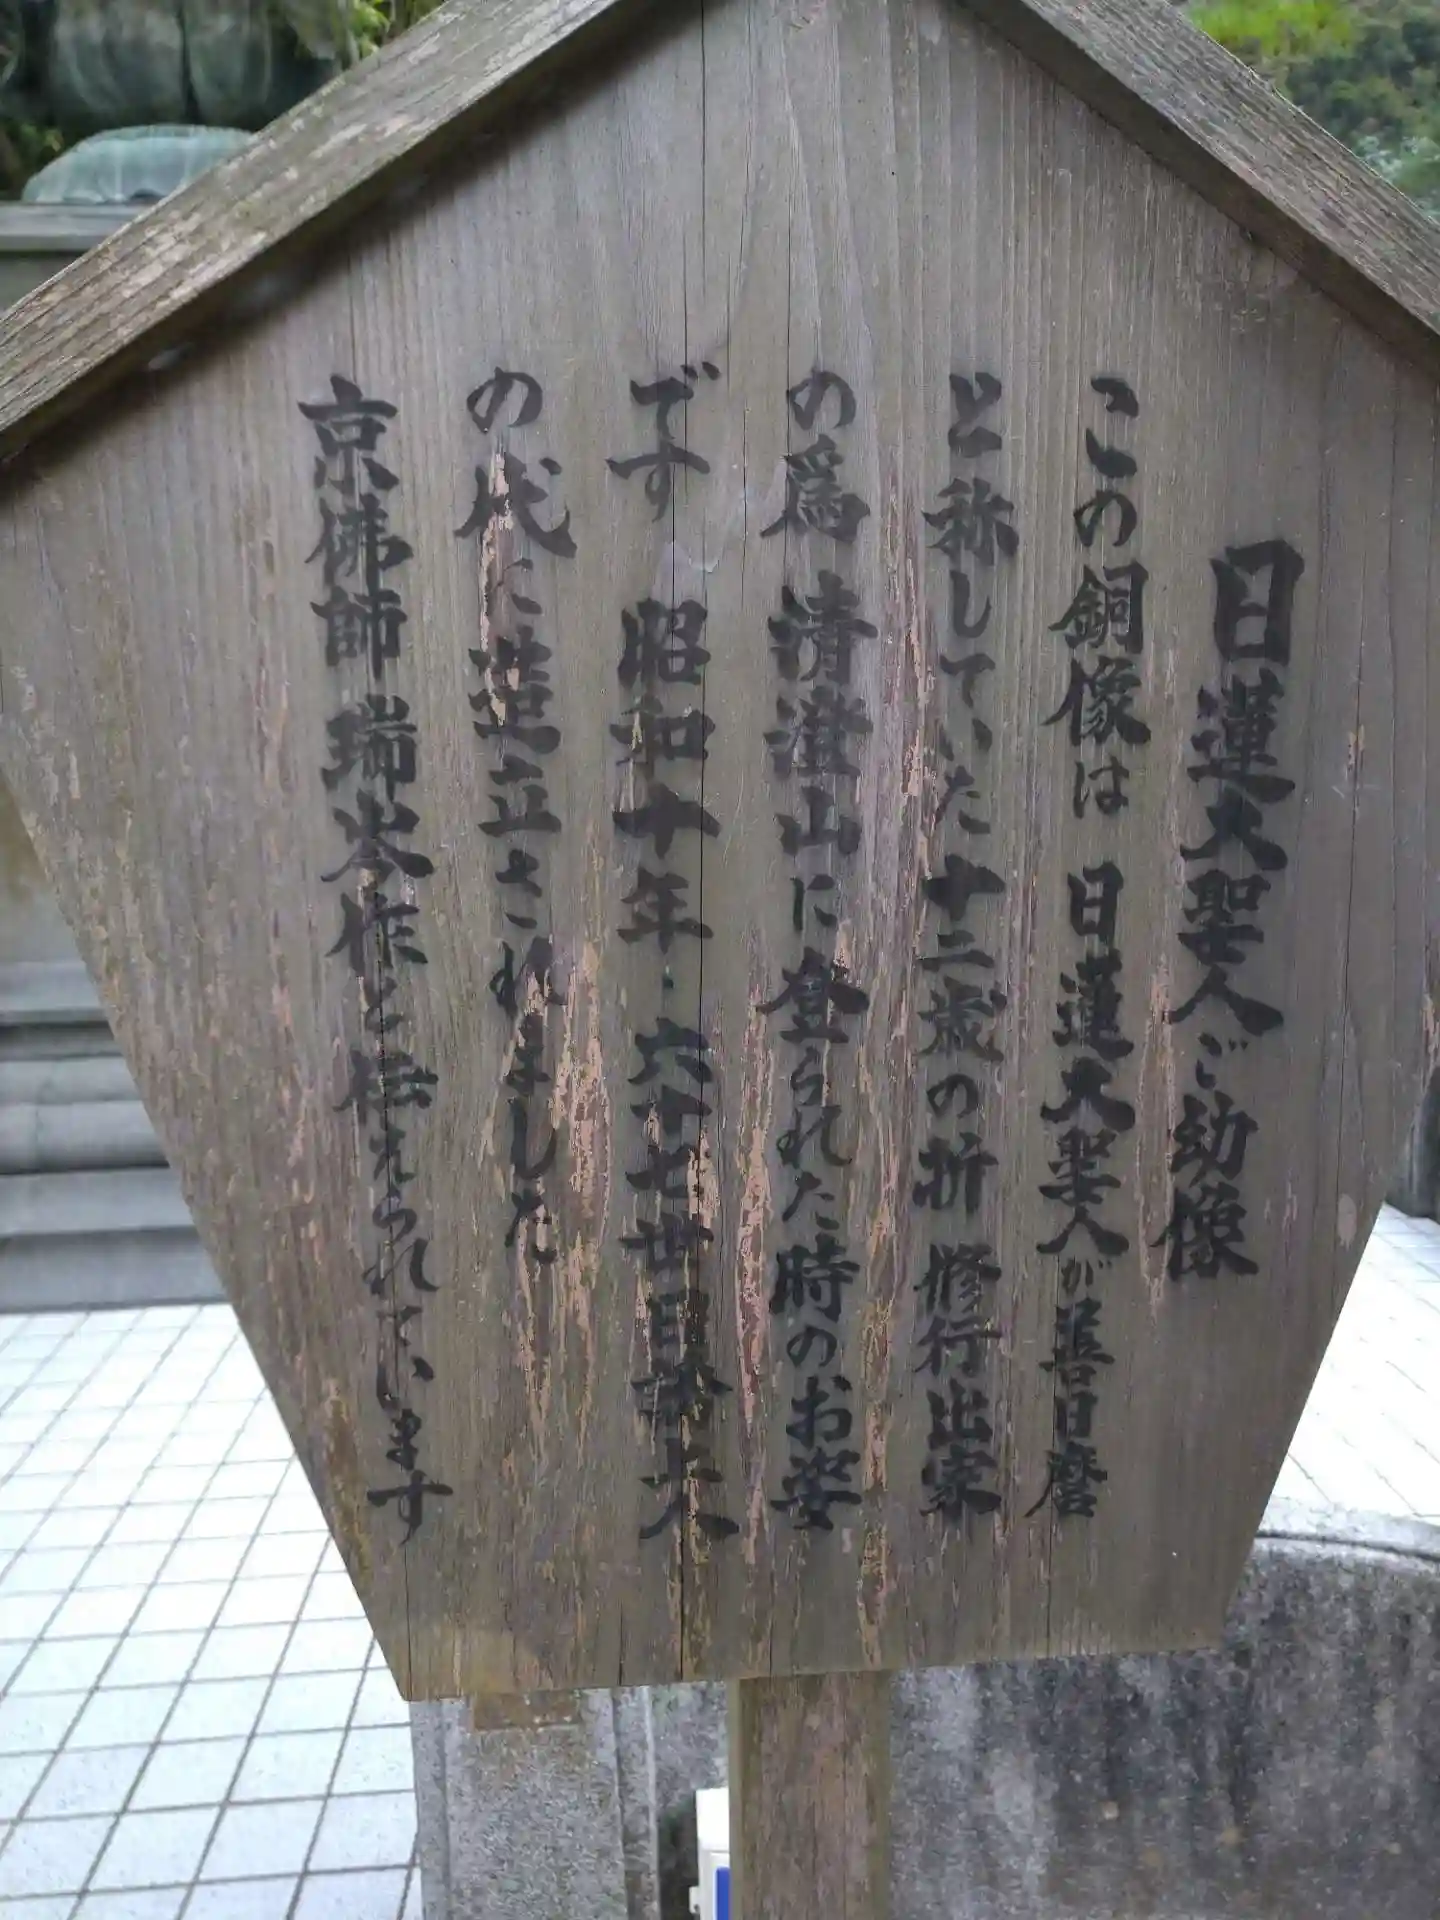 日蓮大聖人ご幼像
この銅像は 日蓮大聖人が善日麿
と称していた十二歳の折 修行出家
の為 清澄山に登られた時のお姿
です 昭和十年・六十七世日 上人
の代に造立されました
京佛師 瑞岑作と伝えられています